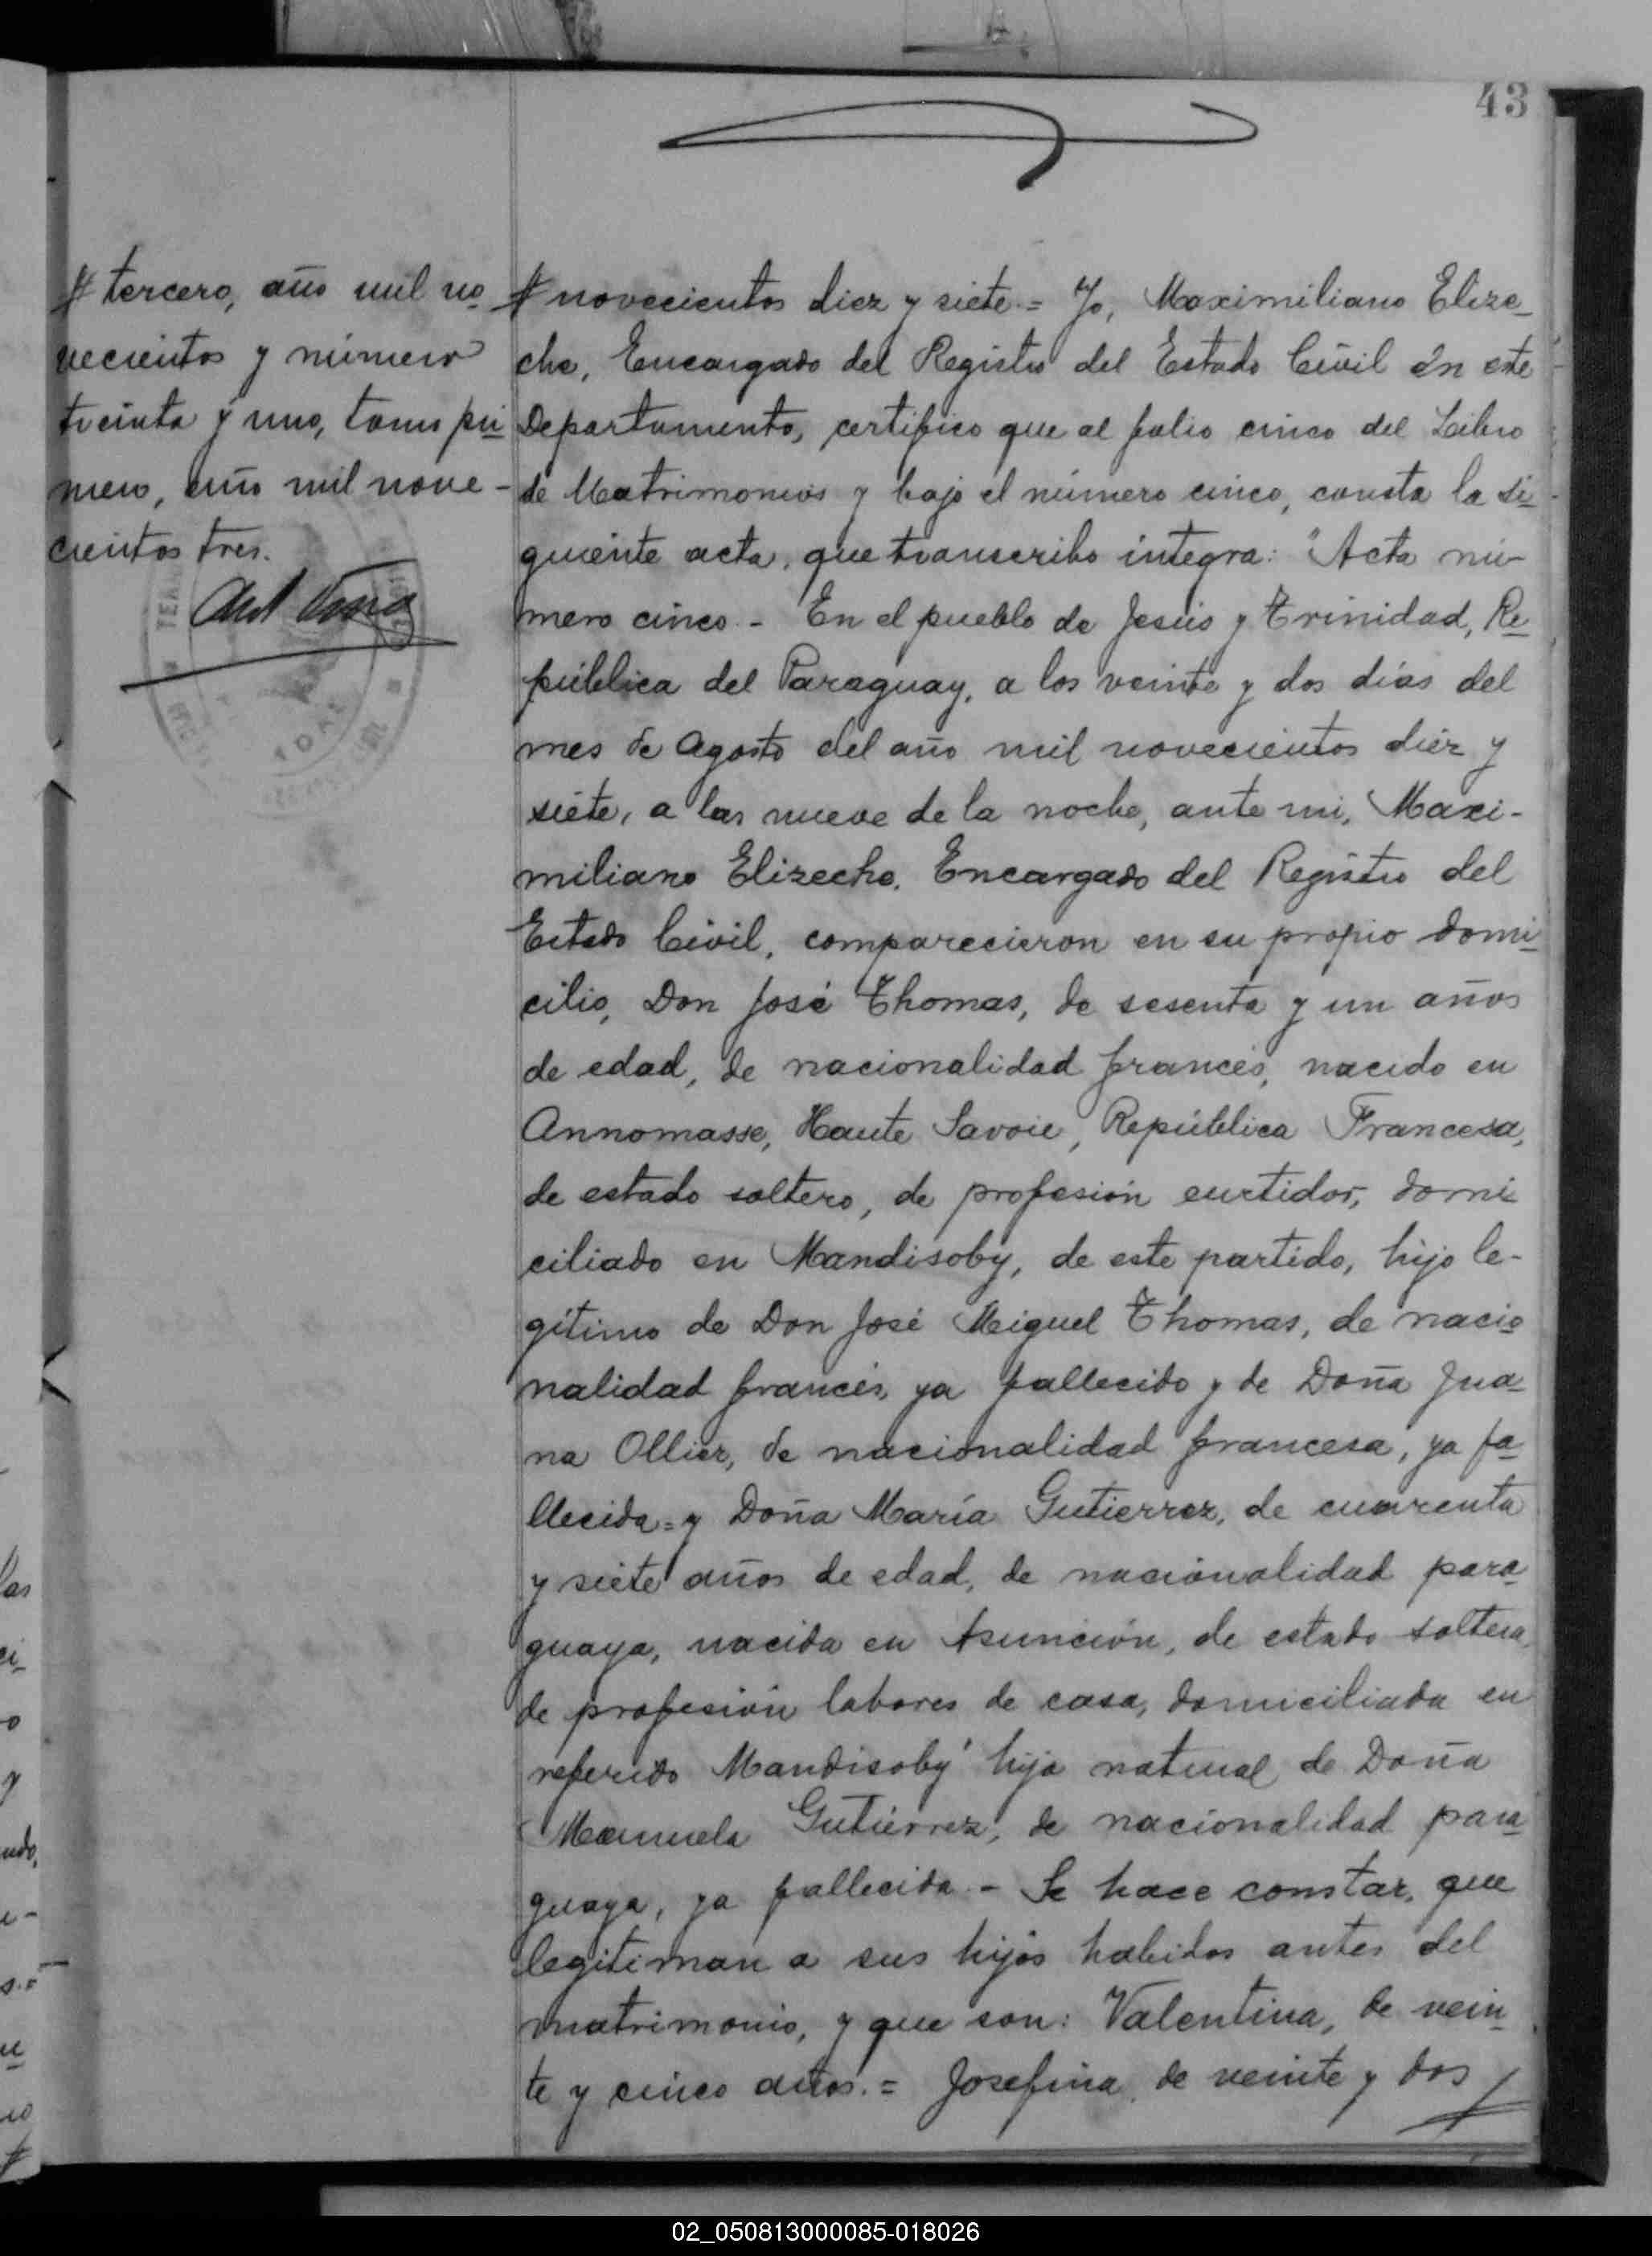 43
# tercero, año mil no
vecientos y número
treinta y uno, tomo pri
mero, año mil nove-
cientos tres.
# novecientos diez y siete.= Yo, Maximiliano Elize-
che, Encargado del Registro del Estado Civil en este
Departamento, certifico que al folio cinco del Libro
de Matrimonios y bajo el número cinco, consta la si
guiente acta, que transcribo íntegra: "Acta nú-
mero cinco.- En el pueblo de Jesús y Trinidad, Re
pública del Paraguay, a los veinte y dos días del
mes de Agosto del año mil novecientos diez y
siete, a las nueve de la noche, ante mi, Maxi-
miliano Elizeche, Encargado del Registro del
Estado Civil, comparecieron en su propio domi
cilio, Don José Thomas, de sesenta y un años
de edad, de nacionalidad francés, nacido en
Annomasse, Haute Savoie, República Francesa,
de estado soltero, de profesión curtidor, domi
ciliado en Mandisoby, de este partido, hijo le-
gítimo de Don José Miguel Thomas, de nacio
nalidad francés, ya fallecido y de Doña Jua
na Ollier, de nacionalidad francesa, ya fa
llecida = y Doña María Gutierrez, de cuarenta
y siete años de edad, de nacionalidad para
guaya, nacida en Asunción, de estado soltera,
de profesión labores de casa, domiciliada en
referido Mandisoby hija natural de Doña
Manuela Gutiérrez, de nacionalidad para
guaya, ya fallecida.- Se hace constar, que
legitiman a sus hijos habidos antes del
matrimonio, y que son: Valentina, de vein
te y cinco años.= Josefina, de veinte y dos #
02_050813000085-018026